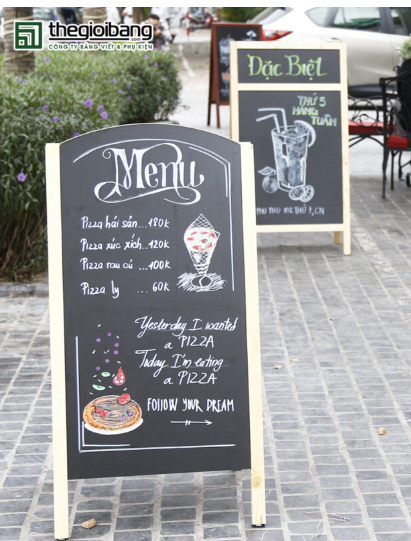 thegioibang
.com
CÔNG TY BẢNG VIẾT & PHỤ KIỆN
Đặc Biệt
THỨ 5
HÀNG
TUẦN
PHỤ THU 10% THỨ 7, CN
Menu
Pizza hải sản ... 180k
Pizza xúc xích ... 120k
Pizza rau củ ... 100k
Pizza ly ... 60k
Yesterday I wanted
a PIZZA
Today I'm eating
a PIZZA
FOLLOW YOUR DREAM